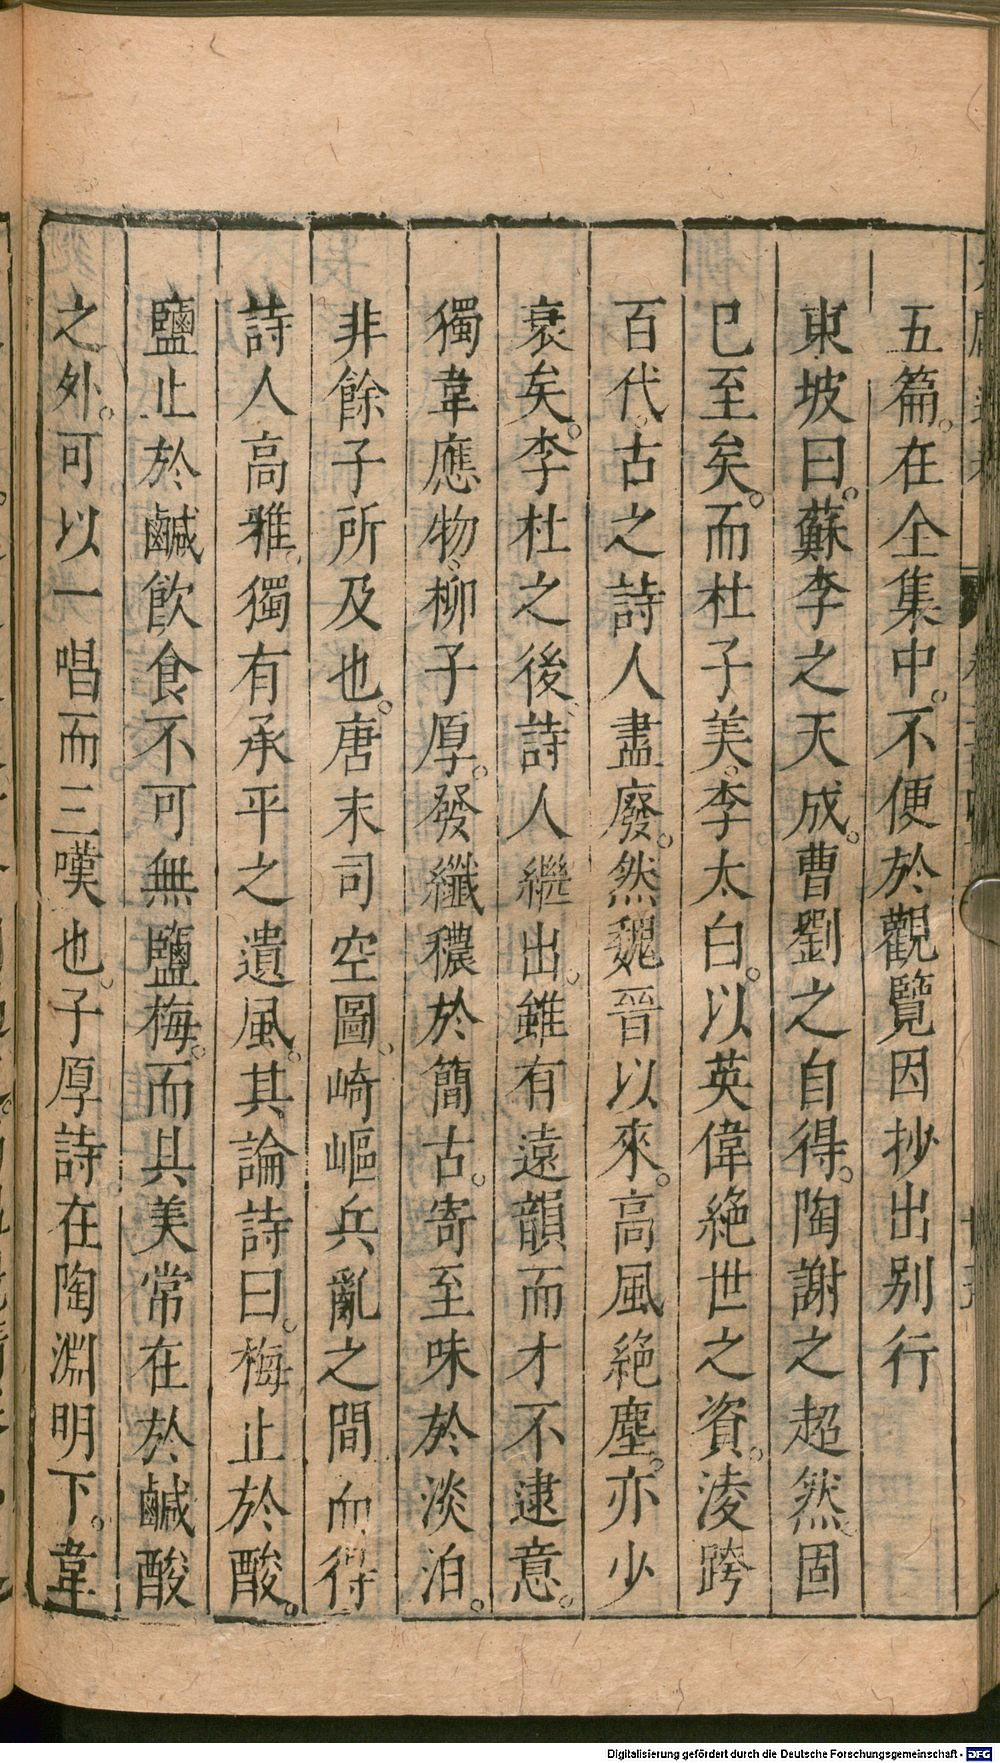 五篇。在全集中。不便於觀覽因抄出別行
東坡曰。蘇李之天成。曹劉之自得。陶謝之超然。固
已至矣。而杜子美。李太白。以英偉絕世之資。淩跨
百代。古之詩人盡廢。然魏晉以來。高風絕塵。亦少
衰矣。李杜之後。詩人繼出。雖有遠韻而才不逮意。
獨韋應物。柳子厚。發纖穠於簡古。寄至味於淡泊。
非餘子所及也。唐末司空圖。崎嶇兵亂之間而得
詩人高雅。獨有承平之遺風。其論詩曰。梅止於酸。
鹽止於鹹飲食不可無鹽梅。而其美常在於鹹酸
之外。可以一唱而三嘆也。子厚詩在陶淵明下。韋
Digitalisierung gefördert durch die Deutsche Forschungsgemeinschaft - DFG